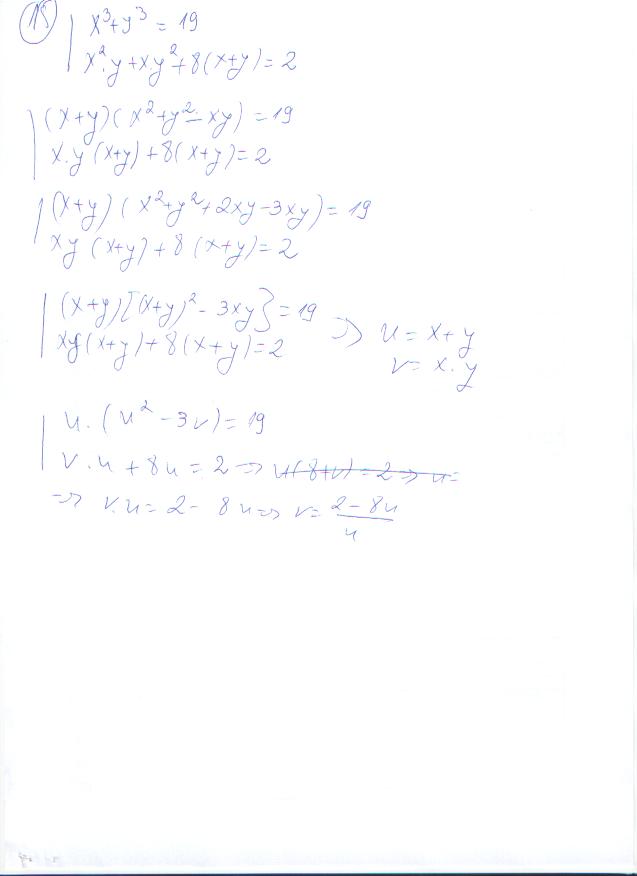 15) x³+y³ = 19
x².y+x.y²+8(x+y)=2
(x+y)(x²+y²-xy) = 19
x.y(x+y)+8(x+y)=2
(x+y)(x²+y²+2xy-3xy) = 19
xy(x+y)+8(x+y)=2
(x+y)[(x+y)²-3xy} = 19 => u = x+y
xy(x+y)+8(x+y)=2 v = x.y
u.(u²-3v) = 19
v.u+8u = 2 => u(8+v) = 2 => u=
=> v.u = 2-8u => v = 2-8u/u